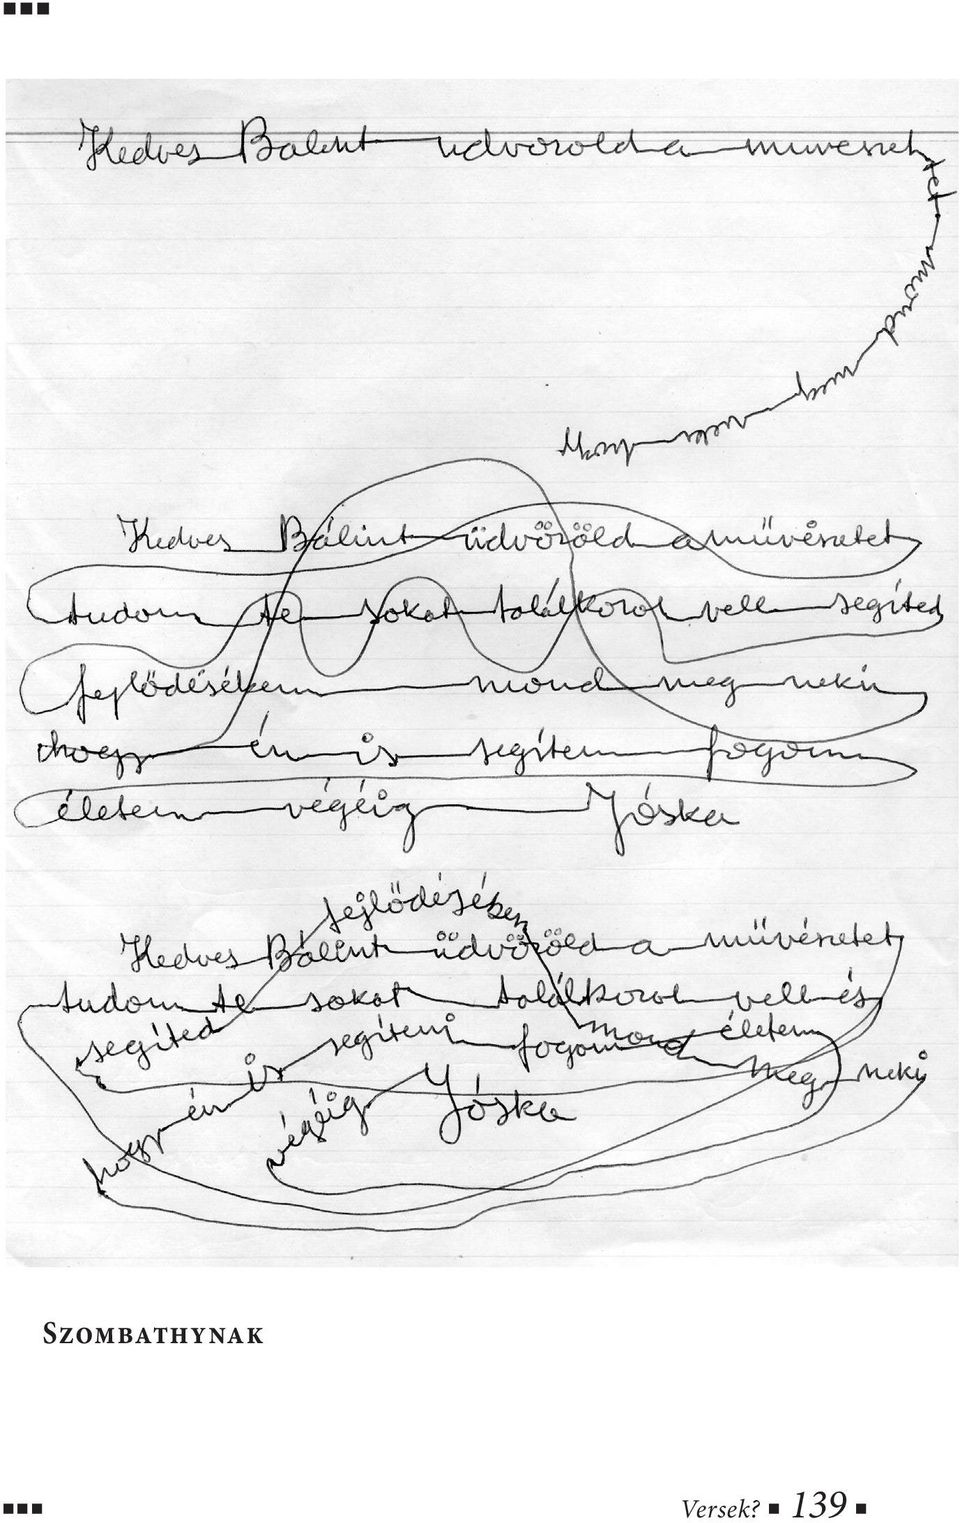 Kedves Balint udvozold a muveszet
tet mond meg neki hogy
Kedves Bálint üdvözöld a müvészetet
tudom te sokat találkozol vele segíted
fejlödésében mond meg neki
hogy én is segíteni fogom
életem végéig Jóska
fejlödésében
Kedves Bálint üdvözöld a müvészetet
tudom te sokat találkozol vele és
segíted mond meg neki
hogy én is segíteni fogom életem
végéig Jóska
SZOMBATHYNAK
Versek? ■ 139 ■